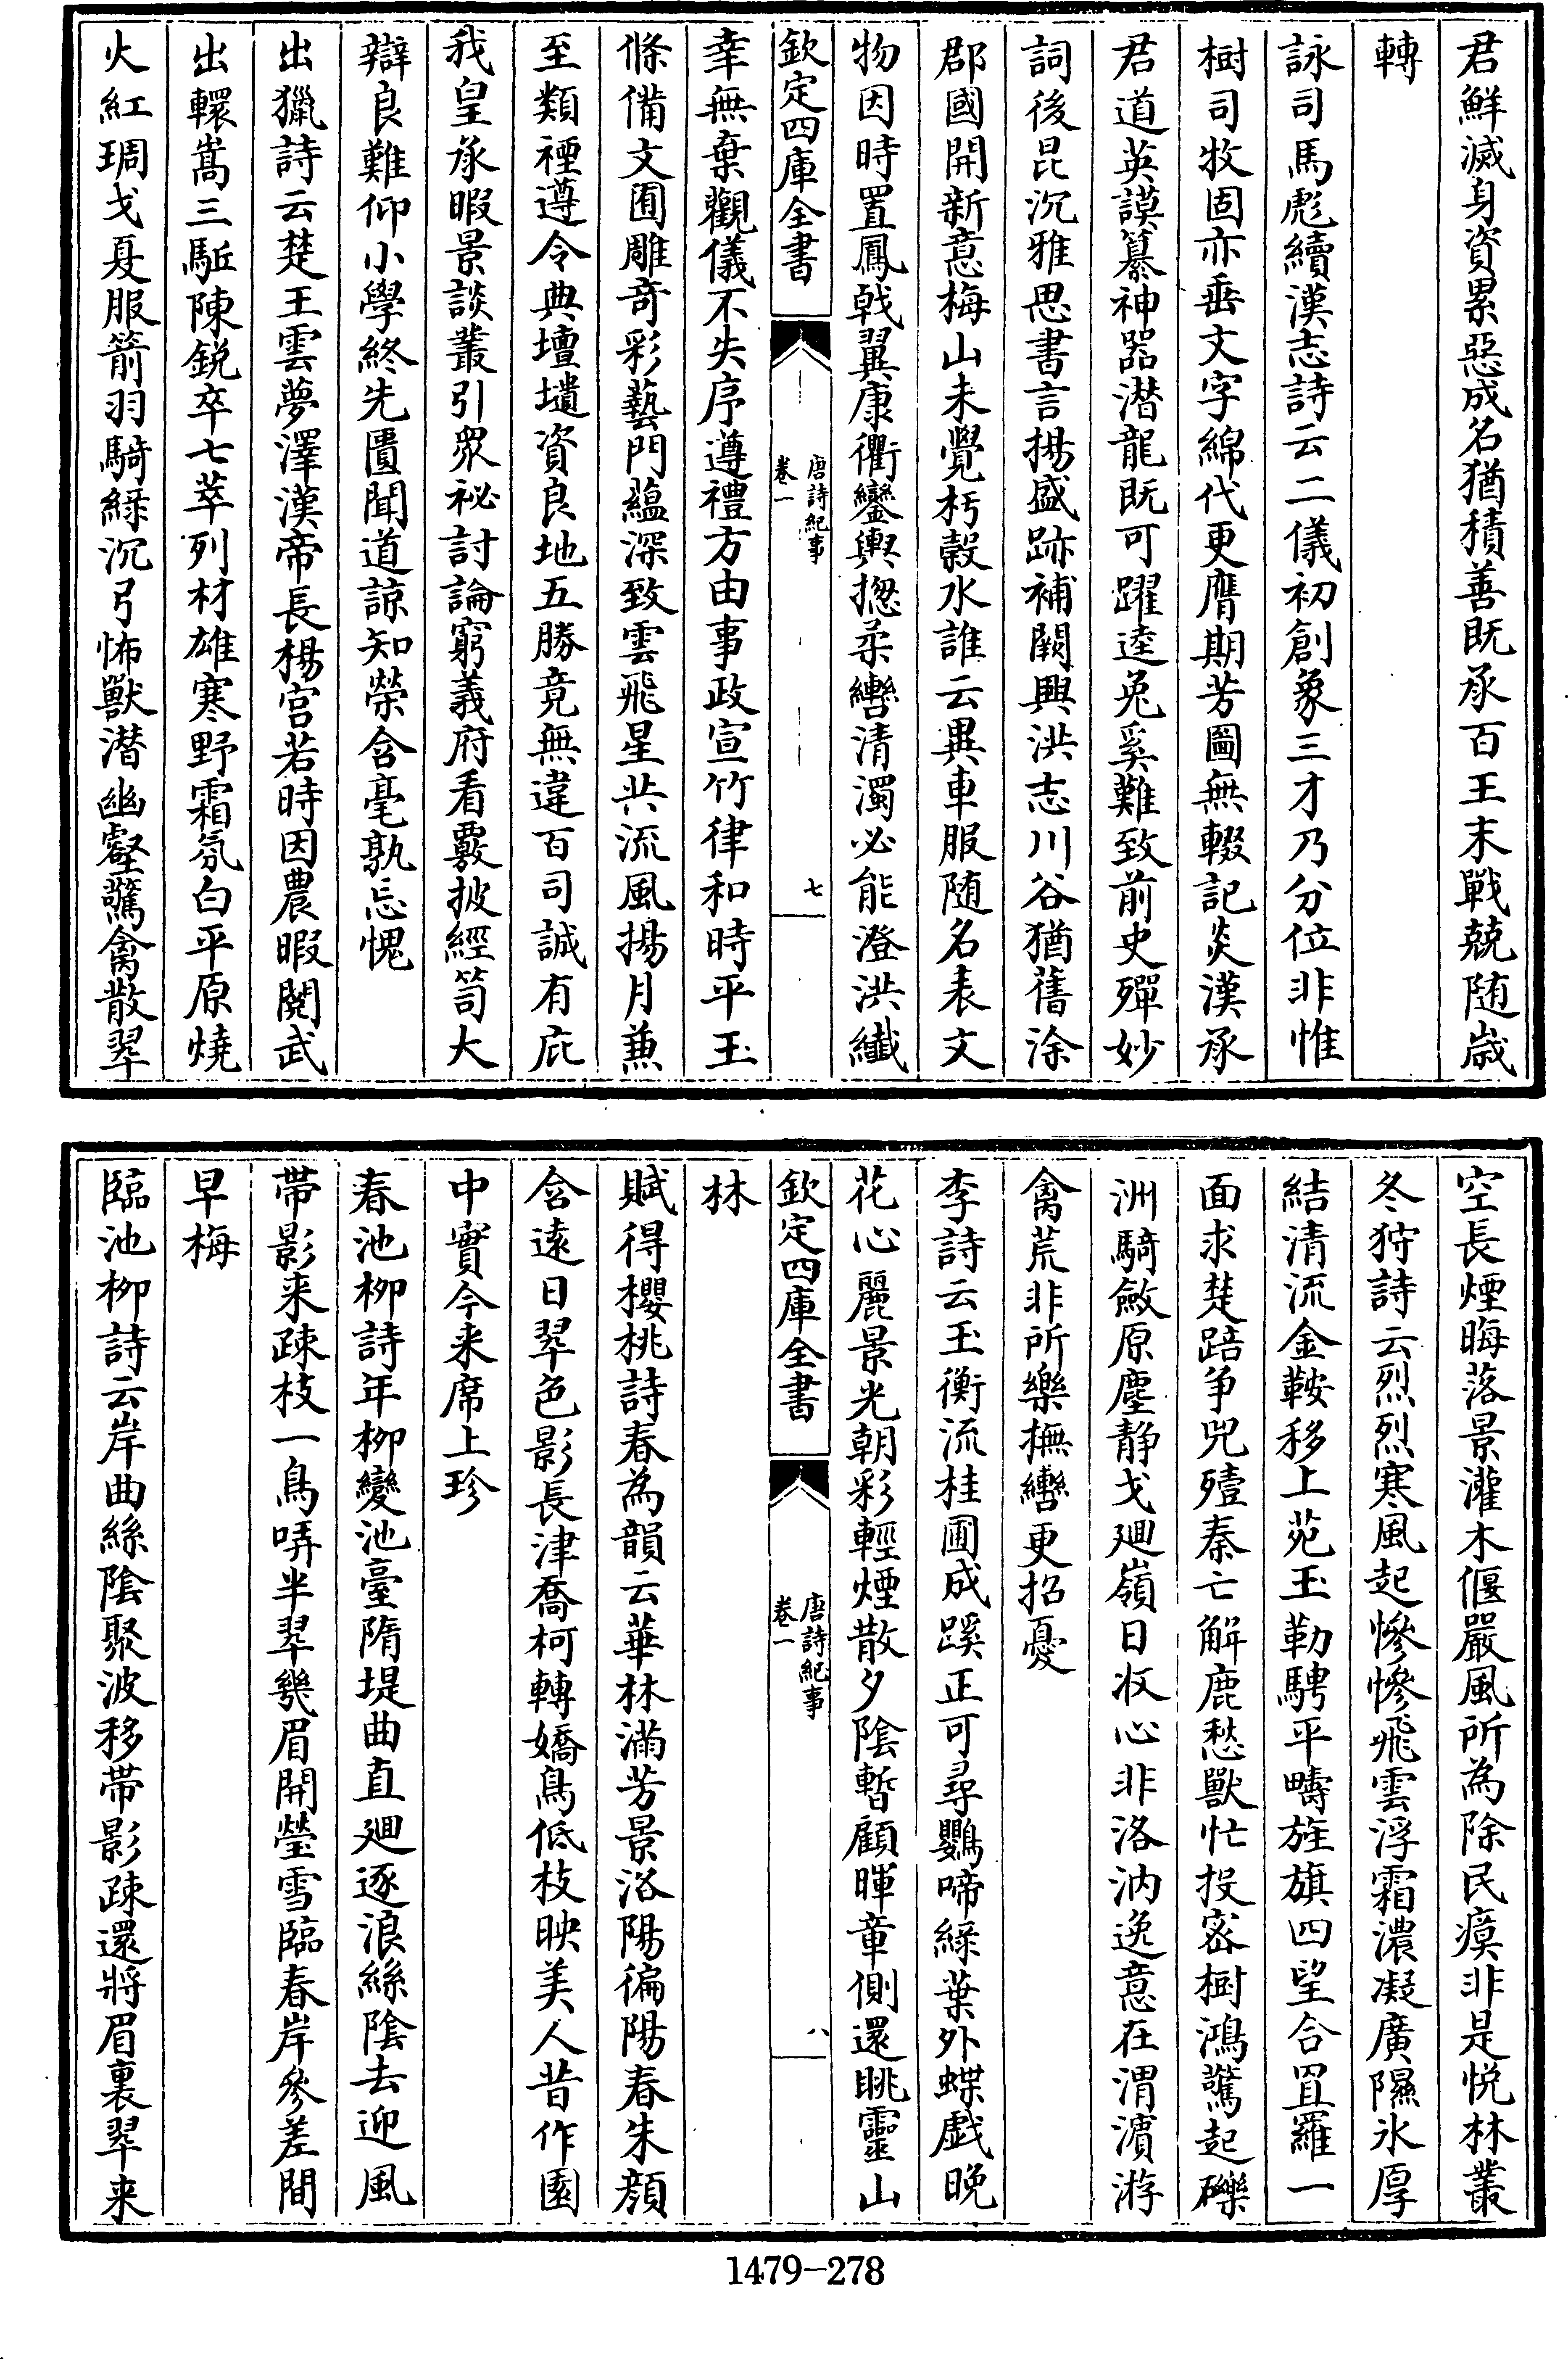 君鮮滅身資累惡成名猶積善既承百王末戰兢随歳
轉
詠司馬彪續漢志詩云二儀初創象三才乃分位非惟
樹司牧固亦垂文字綿代更膺期芳圖無輟記炎漢承
君道英謨纂神器潜龍既可躍逵兎奚難致前史殫妙
詞後昆沉雅思書言揚盛跡補闕興洪志川谷猶舊涂
郡國開新意梅山未覺朽榖水誰云異車服随名表文
物因時置鳳戟翼康衢鑾輿摠柔轡清濁必能澄洪纖
欽定四庫全書
唐詩紀事
卷一
七
幸無棄觀儀不失序遵禮方由事政宣竹律和時平玉
條備文囿雕竒彩藝門藴深致雲飛星共流風揚月兼
至類禋遵令典壇壝資良地五勝竟無違百司誠有庇
我皇承暇景談叢引衆祕討論窮義府看覈披經笥大
辯良難仰小學終先匱聞道諒知榮含毫孰忘愧
出獵詩云楚王雲夢澤漢帝長楊宫若時因農暇閱武
出轘嵩三驅陳銳卒七萃列材雄寒野霜氛白平原燒
火紅琱戈夏服箭羽騎緑沉弓怖獸潜幽壑驚禽散翠
空長煙晦落景灌木偃嚴風所為除民瘼非是悦林叢
冬狩詩云烈烈寒風起慘慘飛雲浮霜濃凝廣隰氷厚
結清流金鞍移上苑玉勒騁平疇旌旗四望合罝羅一
面求楚踣争兕殪秦亡解鹿愁獸忙投宻樹鴻驚起礫
洲騎斂原塵靜戈廻嶺日收心非洛汭逸意在渭濵游
禽荒非所樂撫轡更招憂
李詩云玉衡流桂圃成蹊正可尋鸎啼緑葉外蝶戯晚
花心麗景光朝彩輕煙散夕陰暫顧暉章側還眺靈山
欽定四庫全書
唐詩紀事
卷一
八
林
賦得櫻桃詩春為韻云華林滿芳景洛陽徧陽春朱顔
含遠日翠色影長津喬柯轉嬌鳥低枝映美人昔作園
中實今来席上珍
春池柳詩年柳變池臺隋堤曲直廻逐浪絲陰去迎風
帯影来疎枝一鳥哢半翠㡬眉開瑩雪臨春岸參差間
早梅
臨池柳詩云岸曲絲陰聚波移帯影疎還將眉裏翠来
1479-278